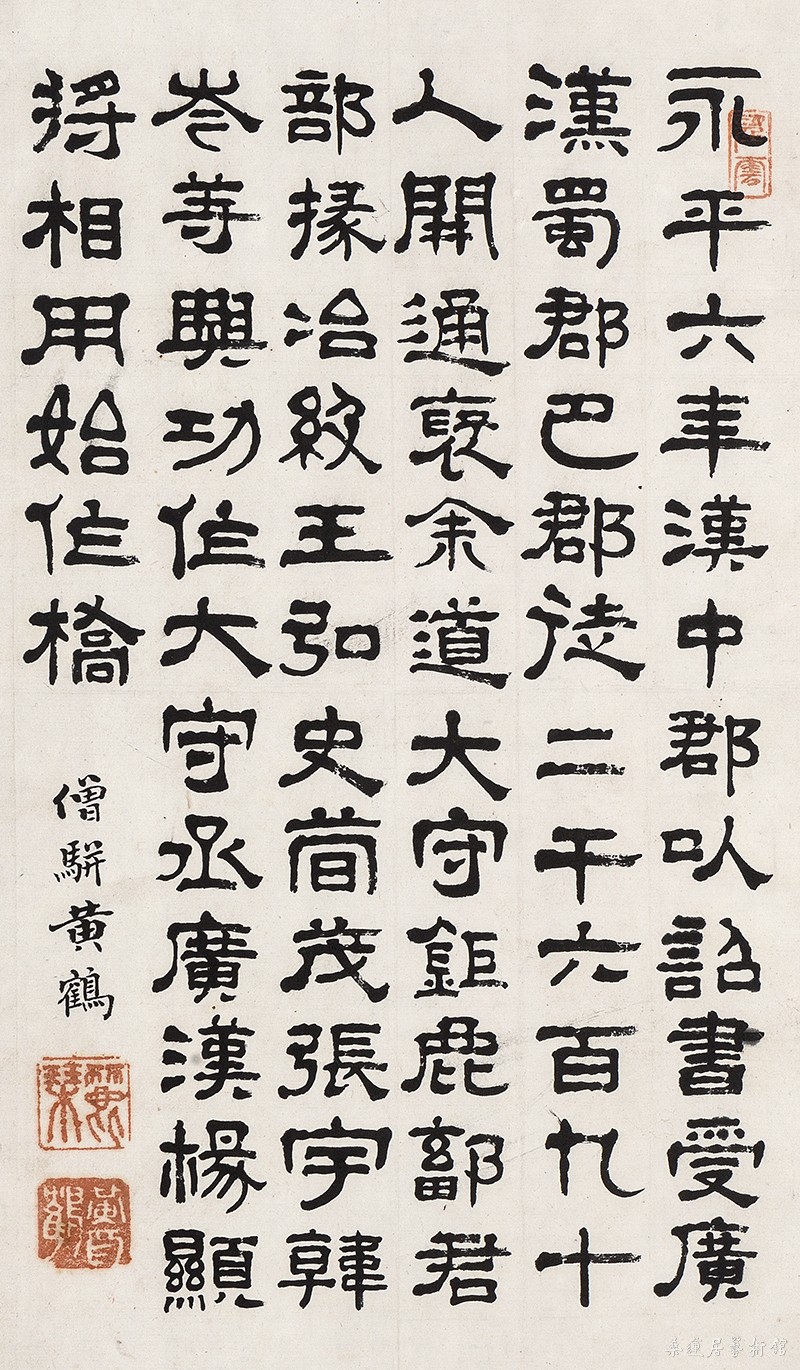 永平六年漢中郡以詔書受廣
漢蜀郡巴郡徒二千六百九十
人開通褒余道大守鉅鹿鄐君
部掾治級王弘史荀茂張宇韓
岑等興功作大守丞廣漢楊顯
將相用始作橋
僧騈黄鶴